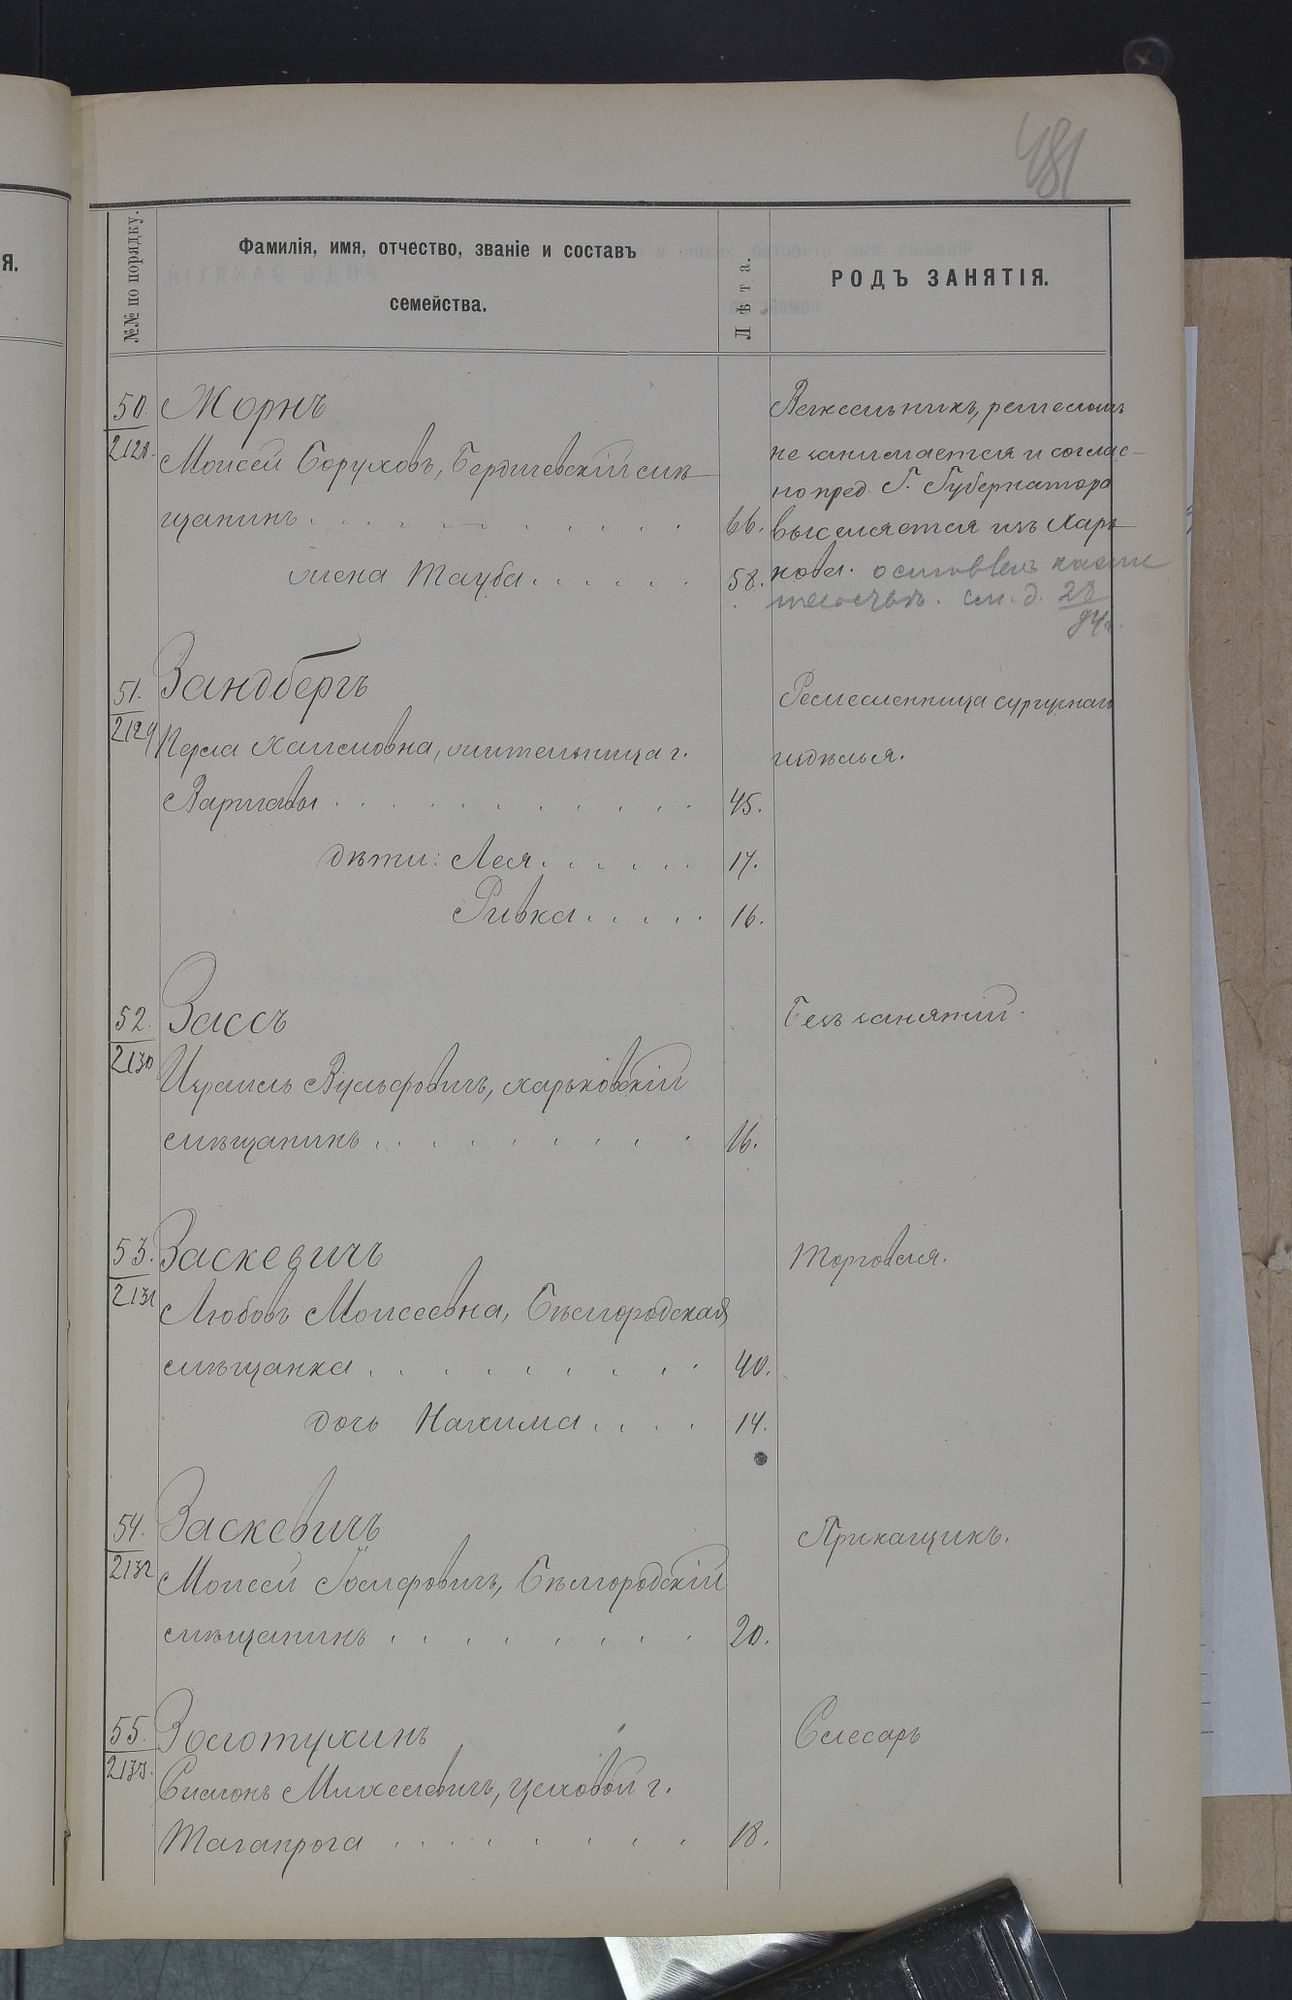 481
я.
№№ по порядку.
Фамилія, имя, отчество, званіе и составъ
семейства.
Лѣта.
РОДЪ ЗАНЯТІЯ.
50. Жорнъ
2128. Моисей Боруховъ, Бердичевскій мѣ-
щанинъ . . . . . . . . . 66.
жена Тауба . . . . . . 58.
Векселъникъ, ремесломъ
не занимается и соглас-
но пред. Г. Губернатора
выселяется изъ Харь
кова. оставленъ
см. д. 28
94 г.
51. Зандбергъ
2129 Перла Хаимовна, жительница г.
Варшавы . . . . . . . . . 45.
дѣти: Лея . . . . . . 17.
Ривка . . . . . 16.
Ремесленница сургучнаго
издѣлья.
52. Зассъ
2130 Израиль Вульфовичъ, харьковскій
мѣщанинъ . . . . . . . . 16.
Безъ занятій.
53. Заскевичъ
2131 Любовь Моисеевна, Бѣлгородская
мѣщанка . . . . . . . . 40.
дочь Нахима . . . . 14.
Торговля.
54. Заскевичъ
2132 Моисей Іосифовичъ, Бѣлгородскій
мѣщанинъ . . . . . . . . 20.
Прикащикъ.
55. Золотухинъ
2133. Симонъ Михелевичъ, цеховой г.
Таганрога . . . . . . . . 18.
Слесарь